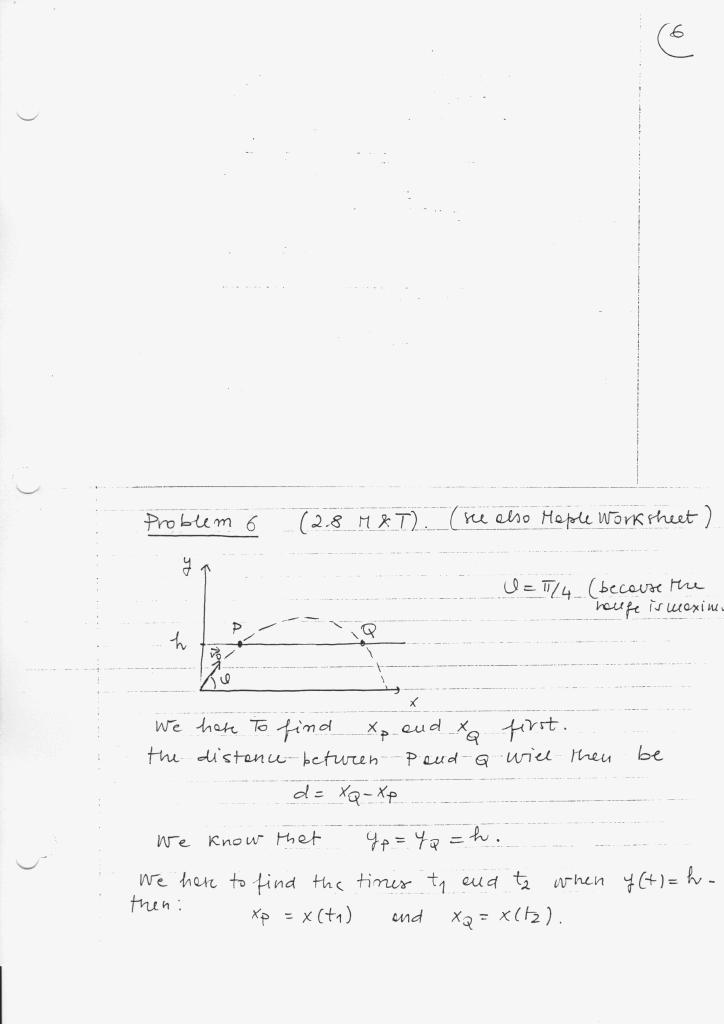 6
Problem 6 (2.8 M & T). (see also Maple Worksheet)
y
ϑ = π/4 (because the
range is maxim
P
Q
h
v₀
ϑ
x
We have to find xP and xQ first.
the distance between P and Q will then be
d = xQ - xP
We know that yP = yQ = h.
We have to find the times t1 and t2 when y(t) = h -
then:
xP = x(t1) and xQ = x(t2).